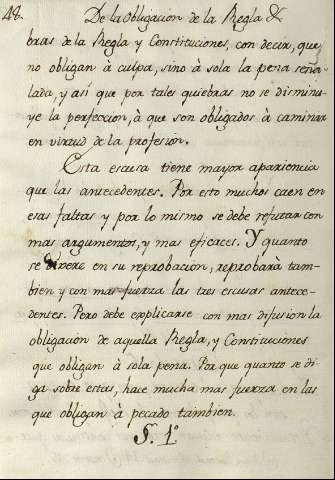 48. De la obligacion de la Regla &
bras de la Regla y Constituciones, con decir, que
no obligan à culpa, sino à sola la pena seña-
lada, y asi que por tales quiebras no se disminu-
ye la perfeccion, à que son obligados à caminar
en virtud de la profesion.
Esta escusa tiene mayor apariencia
que las antecedentes. Por esto muchos caen en
esas faltas y por lo mismo se debe refutar con
mas argumentos, y mas eficaces. Y quanto
se en su reprobacion, reprobarà tam-
bien y con mas fuerza las tres escusas antece-
dentes. Pero debe explicarse con mas difusion la
obligacion de aquella Regla, y Constituciones
que obligan à sola pena. Porque quanto se di-
ga sobre estas, hace mucha mas fuerza en las
que obligan à pecado tambien.
§. 1º